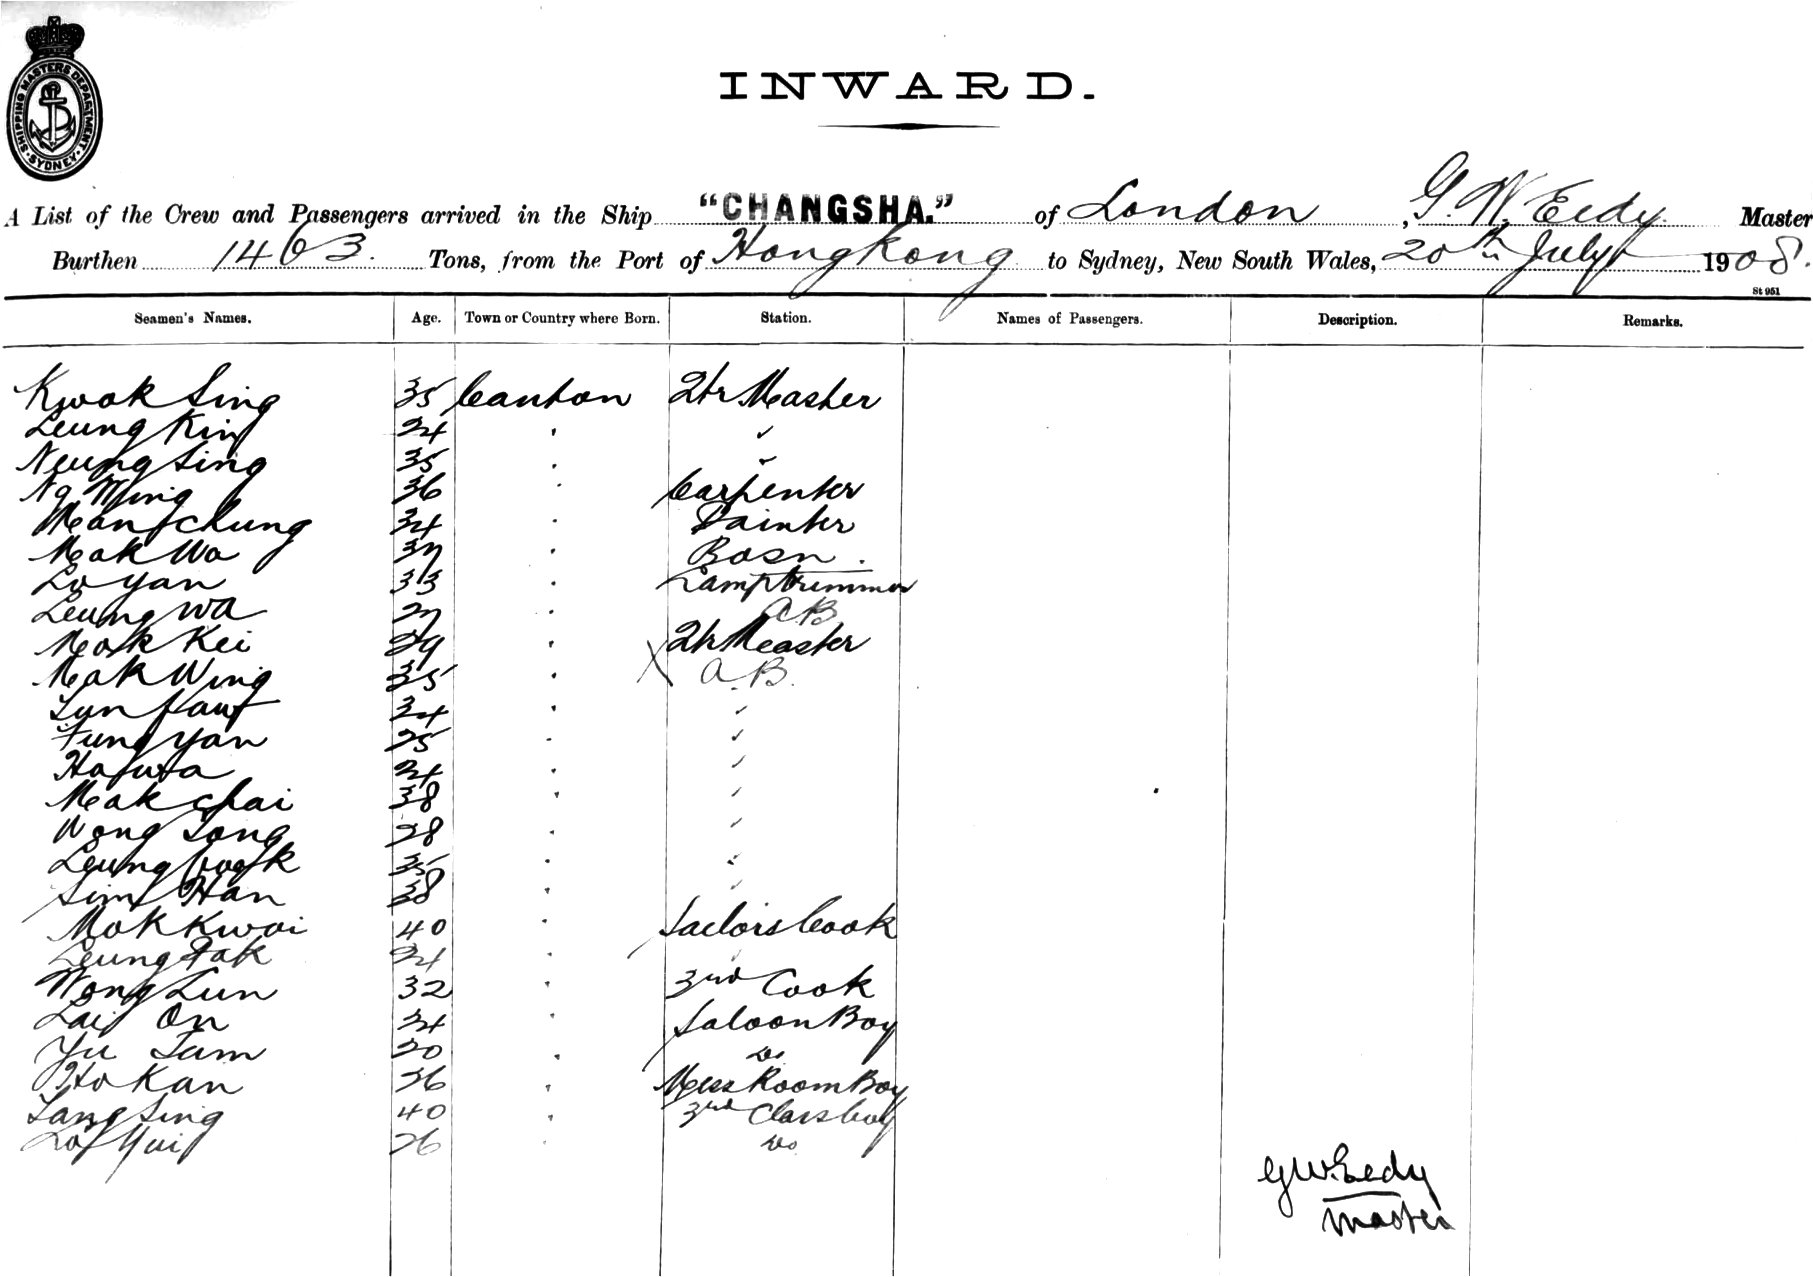 SHIPPING MASTERS DEPARTMENT
SYDNEY
INWARD.
A List of the Crew and Passengers arrived in the Ship "CHANGSHA." of London, G. W. Eedy Master
Burthen 1463. Tons, from the Port of Hong Kong to Sydney, New South Wales, 20th July 1908.
St 951
Seamen's Names. Age. Town or Country where Born. Station. Names of Passengers. Description. Remarks.
Kwok Sing 35 Canton 2tr Master
Leung Kin 24 " "
Neung Sing 35 " "
Ng Ming 36 " Carpenter
Man Chung 34 " Painter
Mak Wo 37 " Bosn.
Lo Yan 33 " Lamptrimmer
Leung Wa 27 " AB
Mok Kei 29 " 2tr Master
Mak Wing 35 " X A.B.
24 " "
Fung Yan 25 " "
24 " "
Mak Chai 38 " "
Wong Song 28 " "
Leung 35 " "
Sim Han 38 " "
Mok Kwai 40 " Sailors Cook
Leung Tak 24 " "
Wong Lun 32 " 3rd Cook
Lai On 24 " Saloon Boy
Yu Tam 20 " Do
Ho Kan 26 " Mess Room Boy
Sang Sing 40 " 3rd Class boy
Lo Yui 26 " Do
G W. Eedy
Master